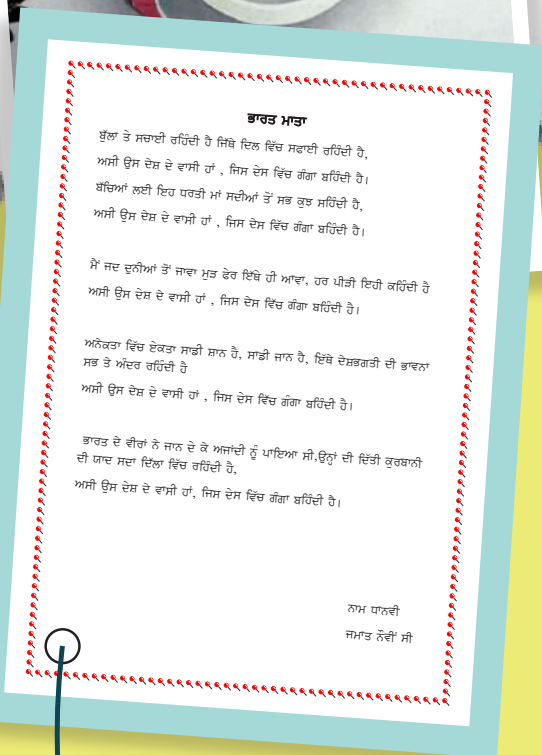 ਭਾਰਤ ਮਾਤਾ
ਬੁੱਲਾ ਤੇ ਸਚਾਈ ਰਹਿੰਦੀ ਹੈ ਜਿੱਥੇ ਦਿਲ ਵਿੱਚ ਸਫਾਈ ਰਹਿੰਦੀ ਹੈ,
ਅਸੀ ਉਸ ਦੇਸ਼ ਦੇ ਵਾਸੀ ਹਾਂ , ਜਿਸ ਦੇਸ ਵਿੱਚ ਗੰਗਾ ਬਹਿੰਦੀ ਹੈ।
ਬੱਚਿਆਂ ਲਈ ਇਹ ਧਰਤੀ ਮਾਂ ਸਦੀਆਂ ਤੋਂ ਸਭ ਕੁਝ ਸਹਿੰਦੀ ਹੈ,
ਅਸੀ ਉਸ ਦੇਸ਼ ਦੇ ਵਾਸੀ ਹਾਂ , ਜਿਸ ਦੇਸ ਵਿੱਚ ਗੰਗਾ ਬਹਿੰਦੀ ਹੈ।
ਮੈਂ ਜਦ ਦੁਨੀਆਂ ਤੋਂ ਜਾਵਾ ਮੁੜ ਫੇਰ ਇੱਥੇ ਹੀ ਆਵਾ, ਹਰ ਪੀੜੀ ਇਹੀ ਕਹਿੰਦੀ ਹੈ
ਅਸੀ ਉਸ ਦੇਸ਼ ਦੇ ਵਾਸੀ ਹਾਂ , ਜਿਸ ਦੇਸ ਵਿੱਚ ਗੰਗਾ ਬਹਿੰਦੀ ਹੈ।
ਅਨੇਕਤਾ ਵਿੱਚ ਏਕਤਾ ਸਾਡੀ ਸ਼ਾਨ ਹੈ, ਸਾਡੀ ਜਾਨ ਹੈ, ਇੱਥੇ ਦੇਸ਼ਭਗਤੀ ਦੀ ਭਾਵਨਾ
ਸਭ ਤੇ ਅੰਦਰ ਰਹਿੰਦੀ ਹੈ
ਅਸੀ ਉਸ ਦੇਸ਼ ਦੇ ਵਾਸੀ ਹਾਂ , ਜਿਸ ਦੇਸ ਵਿੱਚ ਗੰਗਾ ਬਹਿੰਦੀ ਹੈ।
ਭਾਰਤ ਦੇ ਵੀਰਾਂ ਨੇ ਜਾਨ ਦੇ ਕੇ ਅਜਾਂਦੀ ਨੂੰ ਪਾਇਆ ਸੀ,ਉਨ੍ਹਾਂ ਦੀ ਦਿੱਤੀ ਕੁਰਬਾਨੀ
ਦੀ ਯਾਦ ਸਦਾ ਦਿੱਲਾ ਵਿੱਚ ਰਹਿੰਦੀ ਹੈ,
ਅਸੀ ਉਸ ਦੇਸ਼ ਦੇ ਵਾਸੀ ਹਾਂ, ਜਿਸ ਦੇਸ ਵਿੱਚ ਗੰਗਾ ਬਹਿੰਦੀ ਹੈ।
ਨਾਮ ਧਾਨਵੀ
ਜਮਾਤ ਨੌਵੀਂ ਸੀ